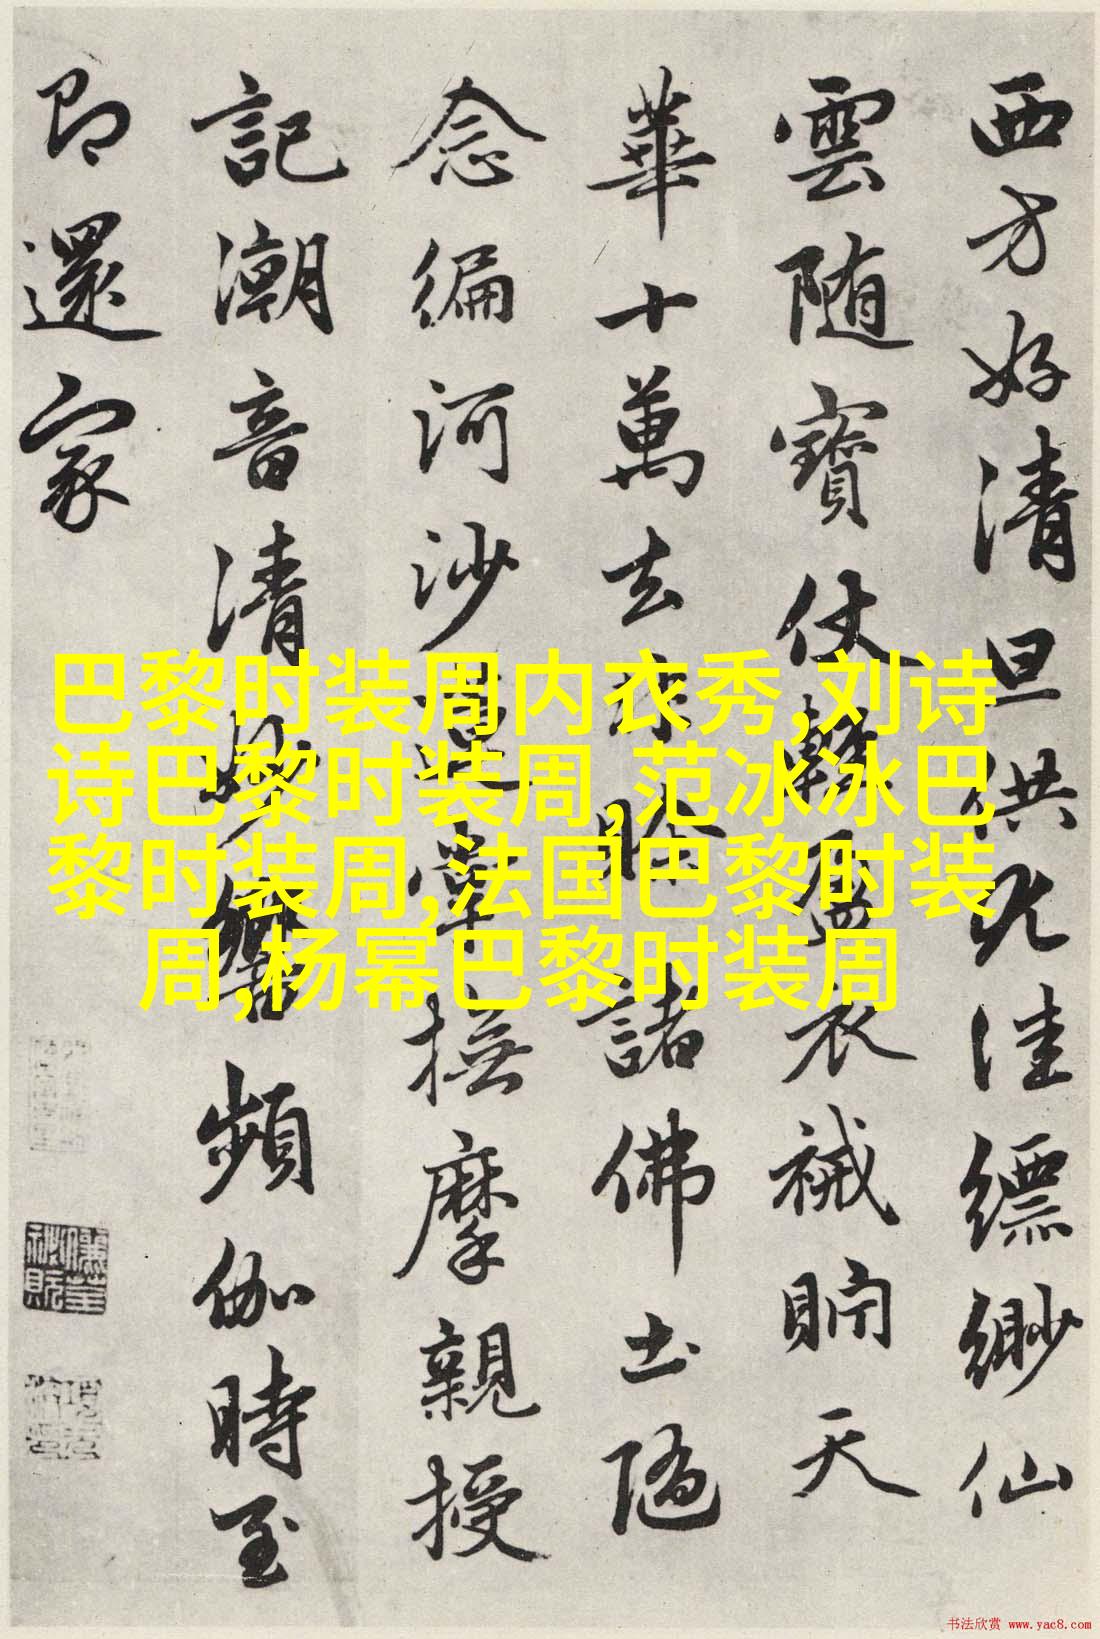 西方好清旦供尤佳縹緲仙
雲随寶仗輕盈衣祴貯天
華十萬去来賒諸佛土隨
念徧河沙蓮掌撫摩親授
記潮音清妙響頻伽時至
即還家
巴黎时装周内衣秀,刘诗
诗巴黎时装周,范冰冰巴
黎时装周,法国巴黎时装
周,杨幂巴黎时装周
书法欣赏 www.yac8.com